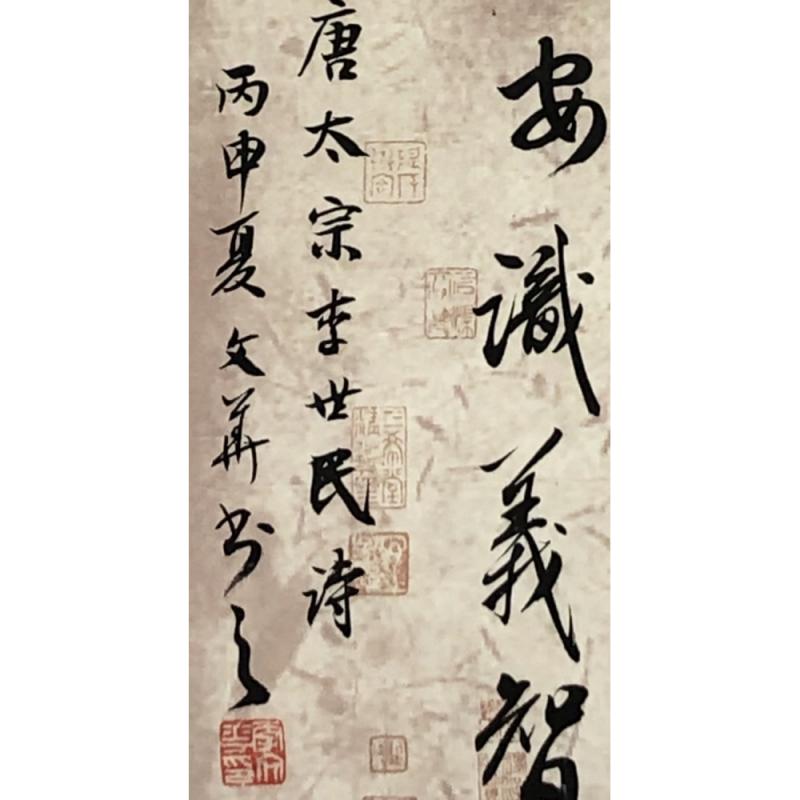 安識義智
唐太宗李世民诗
丙申夏文華书之